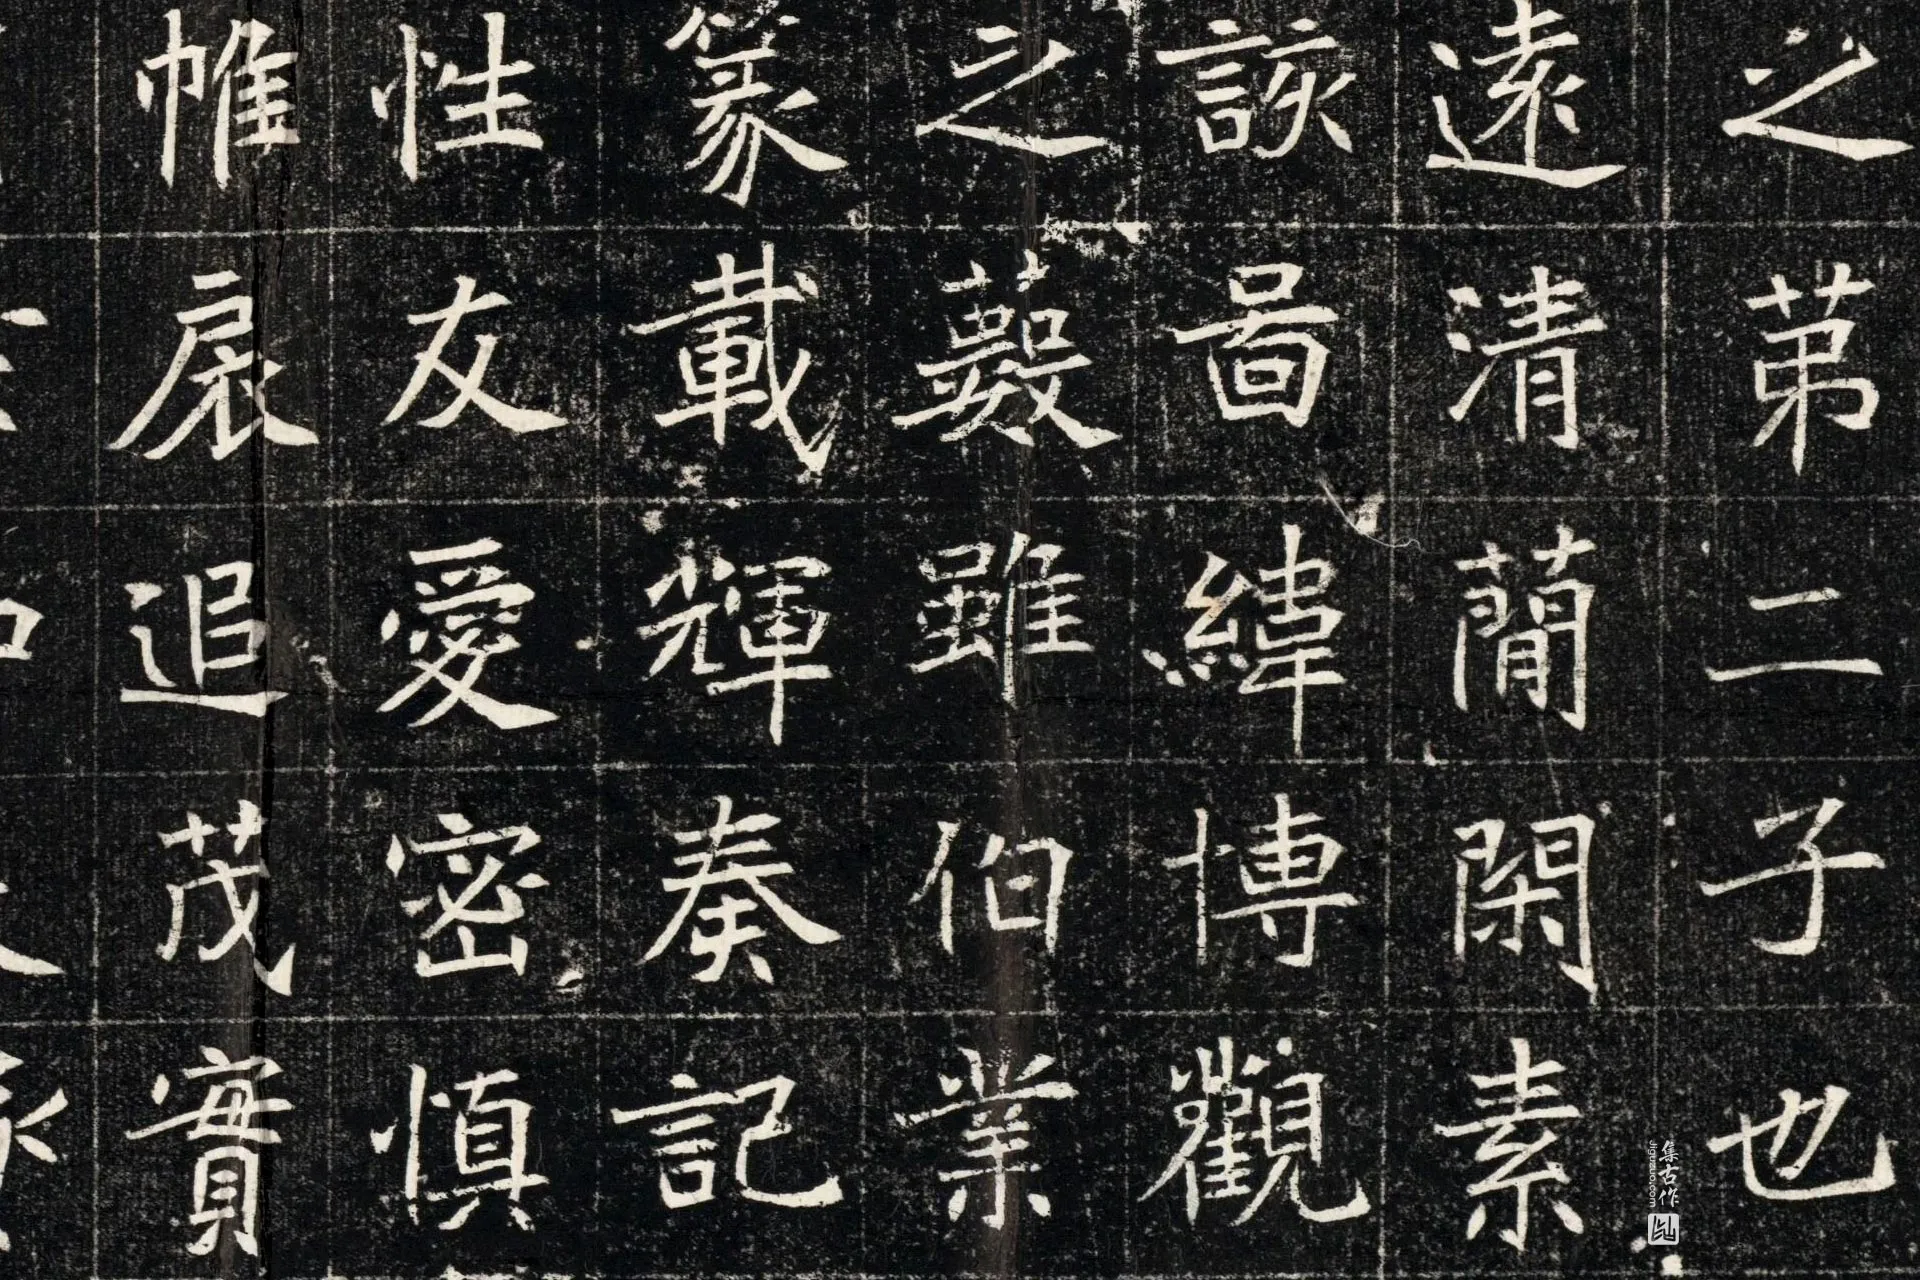 之苐二子也
遠清蕳閑素
該啚緯博觀
之雖伯業
篆載輝奏記
性友愛密慎
帷扆追茂實
集古作
jiguzuo.com